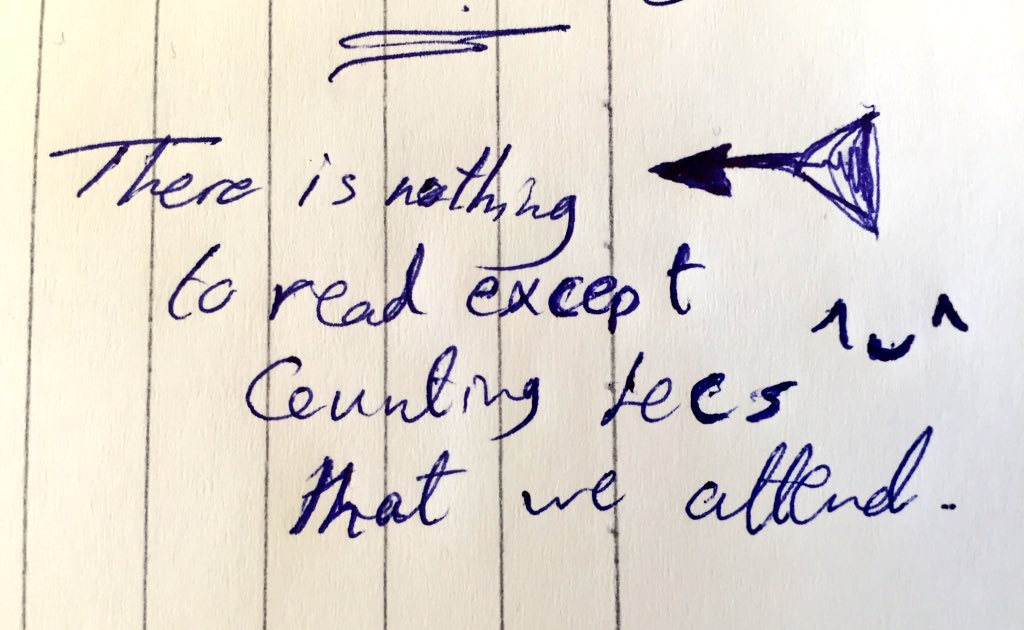 There is nothing
to read except
Counting tecs ^ᴗ^
that we attend.